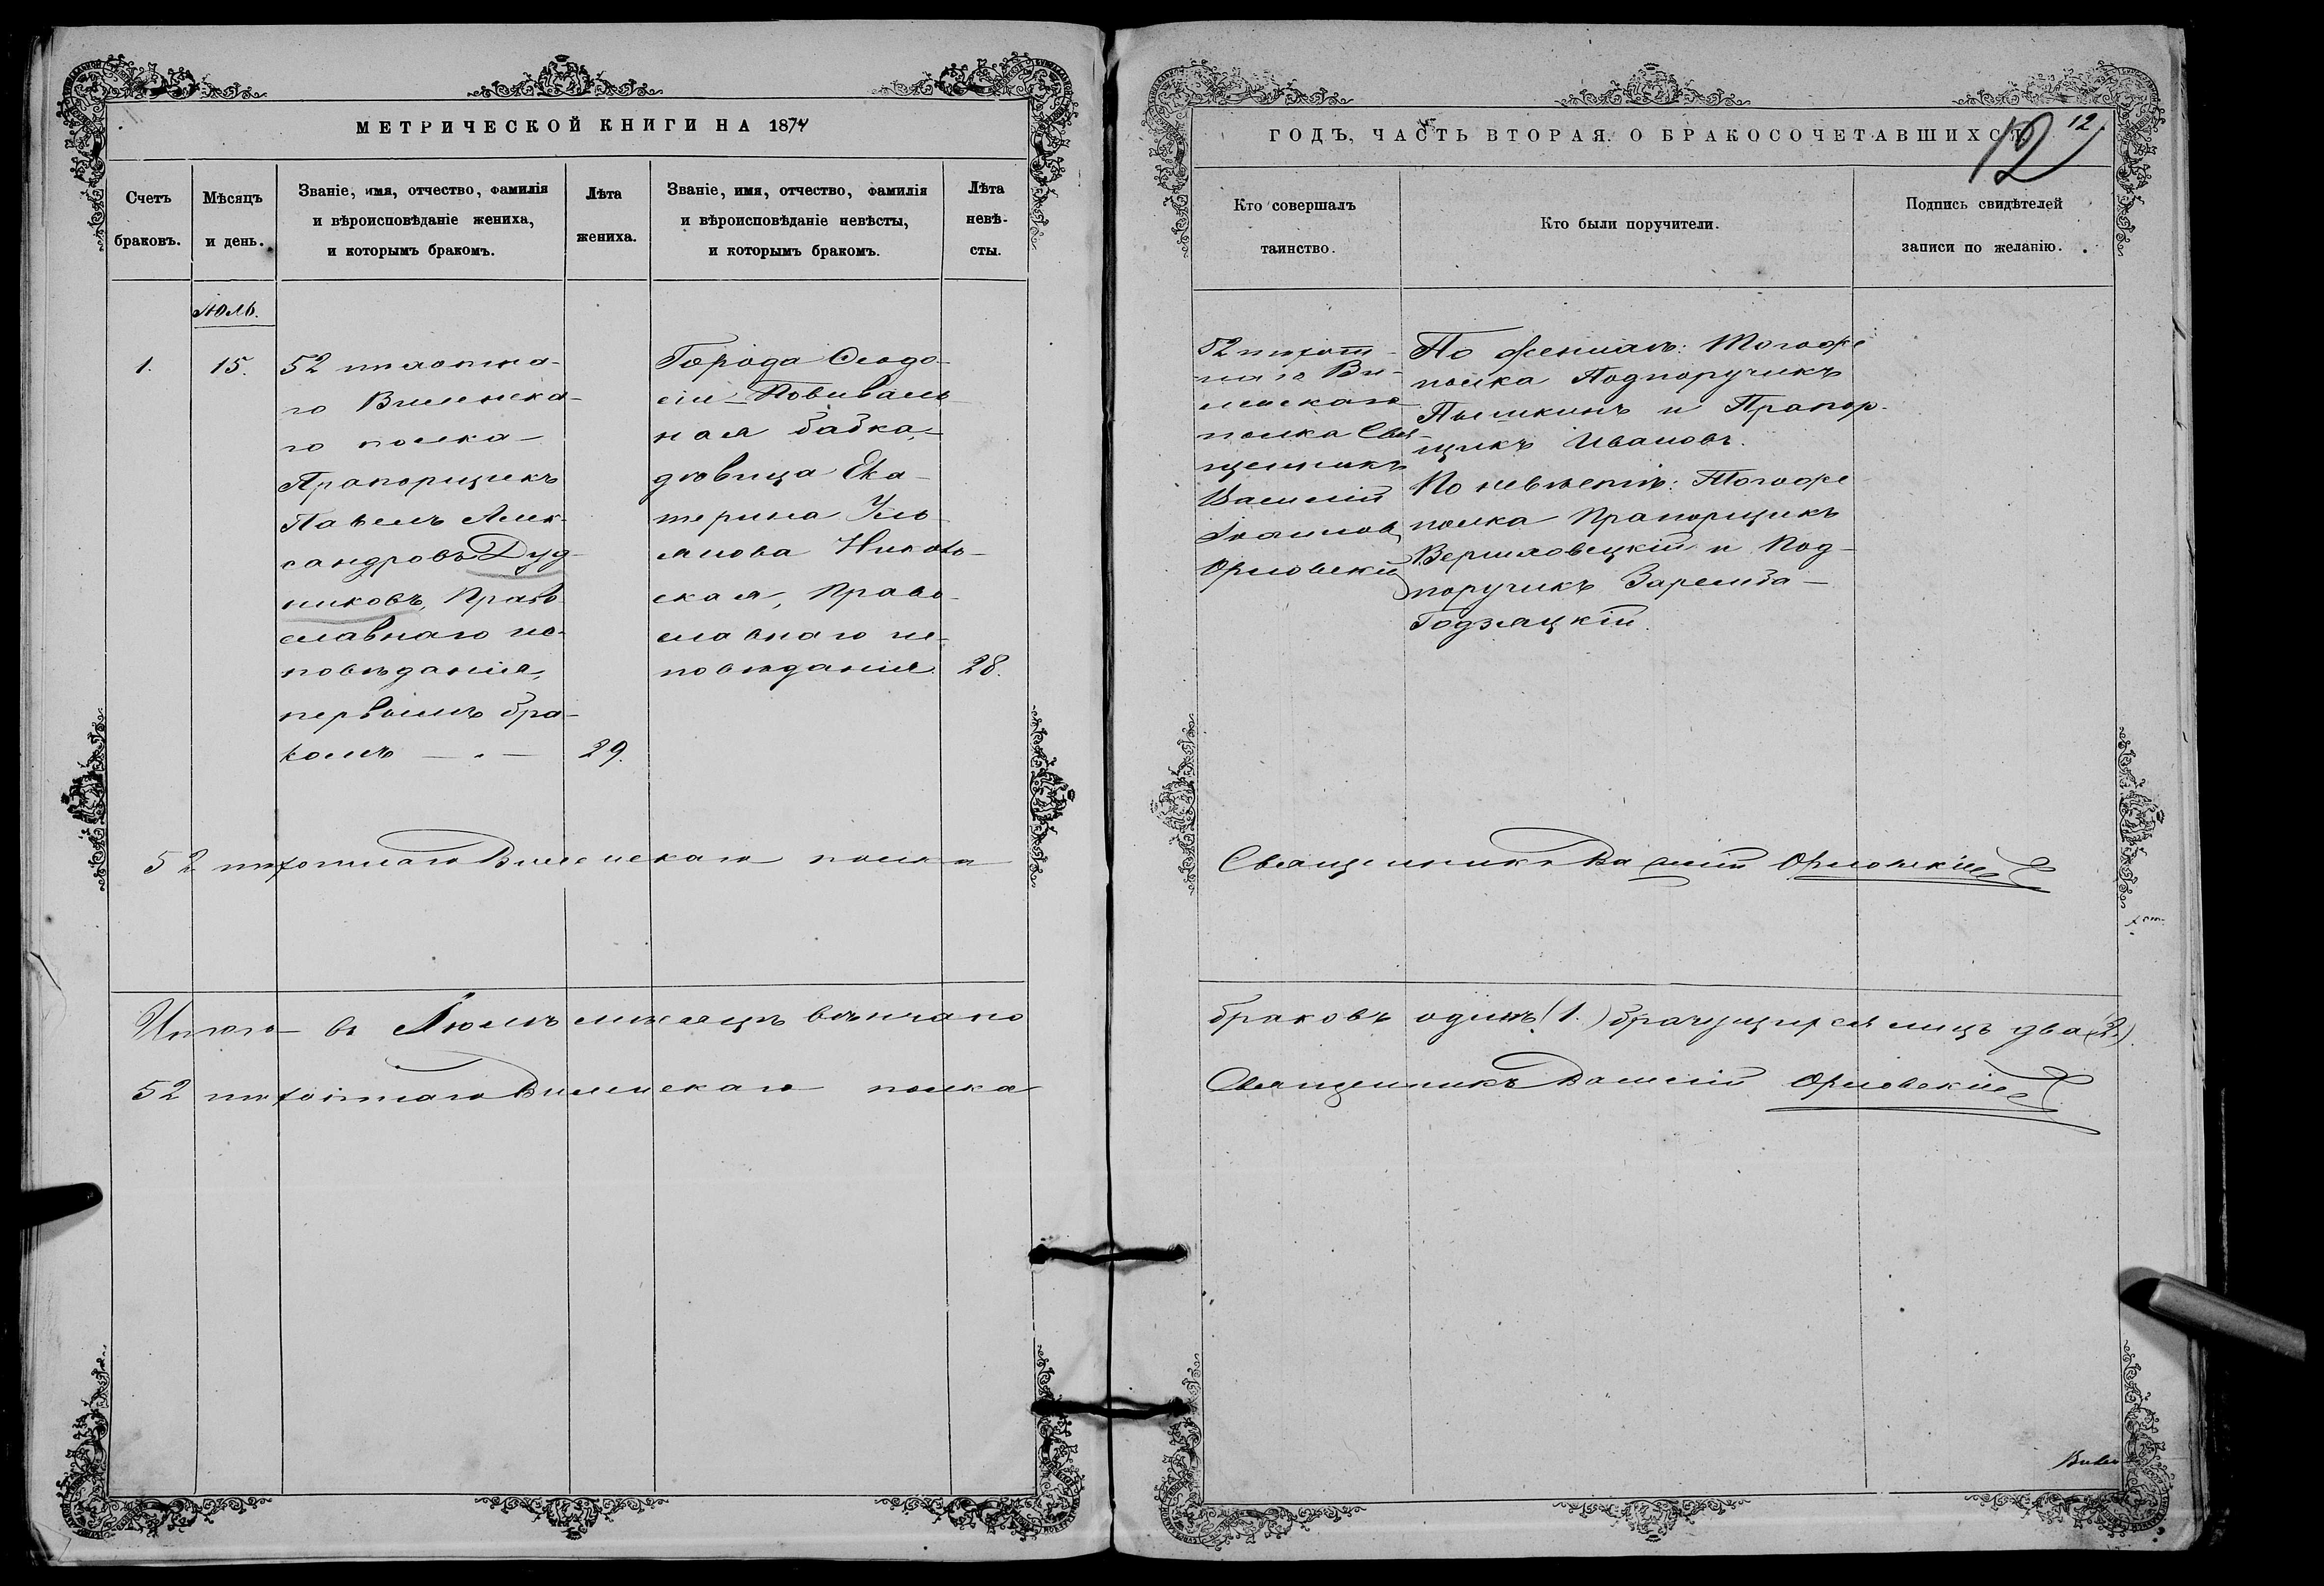 МЕТРИЧЕСКОЙ КНИГИ НА 1874
Счетъ браковъ.
Мѣсяцъ и день.
Званіе, имя, отчество, фамилія
и вѣроисповѣданіе жениха,
и которымъ бракомъ.
Лѣта
жениха.
Званіе, имя, отчество, фамилія
и вѣроисповѣданіе невѣсты,
и которымъ бракомъ.
Лѣта
невѣ-
сты.
Іюль.
1.
15.
52 пѣхотна-
го Виленска-
го полка
Прапорщикъ
Павелъ Алек-
сандровъ Дуд-
никовъ, Право-
славнаго ис-
повѣданія,
первымъ бра-
комъ — „ —
29.
Города Ѳеодо-
сіи Повиваль-
ная бабка,
дѣвица Ека-
терина Улья-
нова Николь-
ская, Право-
славнаго ис-
повѣданія.
28.
52 пѣхотнаго Виленскаго полка
Итого въ Іюлѣ мѣсяцѣ вѣнчано
52 пѣхотнаго Виленскаго полка
ГОДЪ, ЧАСТЬ ВТОРАЯ. О БРАКОСОЧЕТАВШИХСЯ
12.
12
Кто совершалъ
таинство.
Кто были поручители.
Подпись свидѣтелей
записи по желанію.
52 пѣхот-
наго Ви-
ленскаго
полка Свя-
щенникъ
Василій
Орловскій
По женихѣ: Тогоже
полка Подпоручикъ
Пышкинъ и Прапор-
щикъ Ивановъ.
По невѣстѣ: Тогоже
полка Прапорщикъ
Вершховецкій и Под-
поручикъ Заремба-
Годзяцкій.
Священникъ Василій Орловскій
браковъ одинъ (1.) брачущихся лицъ два (2).
Священникъ Василій Орловскій